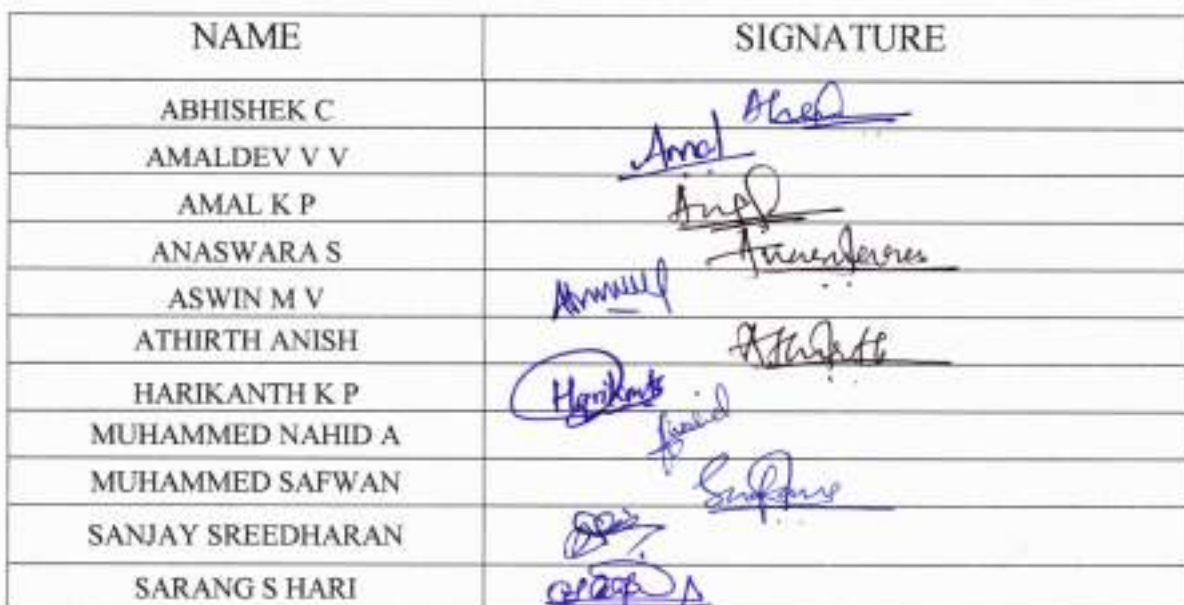 NAME SIGNATURE
ABHISHEK C
AMALDEV V V Amal
AMAL K P
ANASWARA S
ASWIN M V
ATHIRTH ANISH Athirth
HARIKANTH K P Harikanth
MUHAMMED NAHID A
MUHAMMED SAFWAN
SANJAY SREEDHARAN
SARANG S HARI